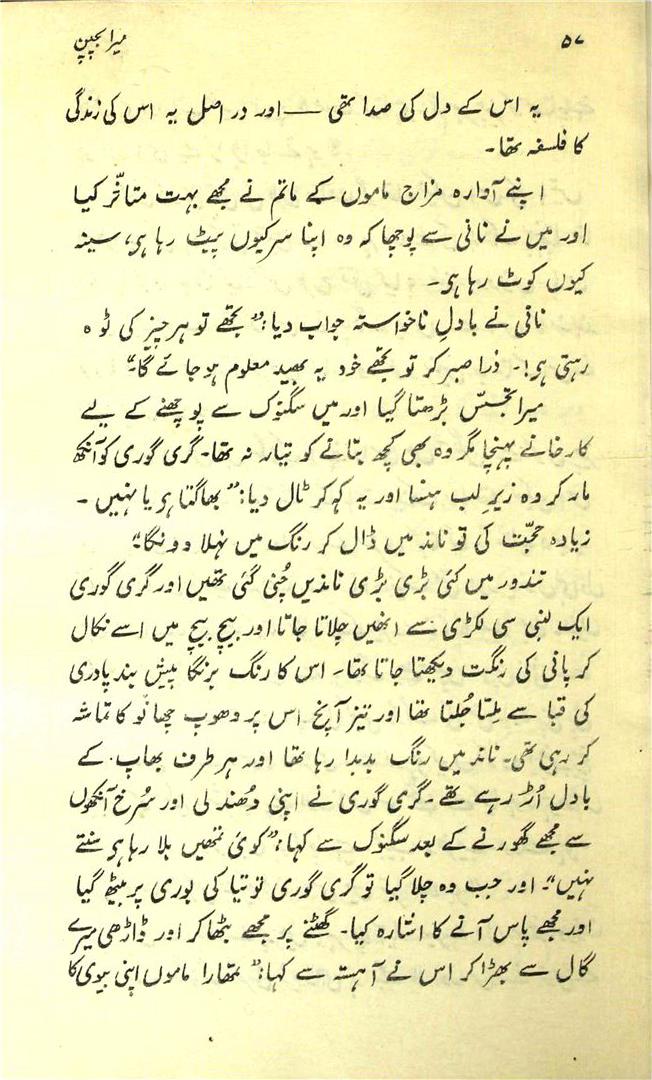 ۵۷
میرا بچپن
یہ اس کے دل کی صدا تھی — اور دراصل یہ اس کی زندگی
کا فلسفہ تھا۔
اپنے آوارہ مزاج ماموں کے ماتم نے مجھے بہت متأثر کیا
اور میں نے نانی سے پوچھا کہ وہ اپنا سر کیوں پیٹ رہا ہی، سینہ
کیوں کوٹ رہا ہی۔
نانی نے بادلِ ناخواستہ جواب دیا: ”تجھے تو ہر چیز کی ٹوہ
رہتی ہی!۔ ذرا صبر کر تو تجھے خود یہ بھید معلوم ہو جائے گا۔“
میرا تجسّس بڑھتا گیا اور میں سگنوک سے پوچھنے کے لیے
کارخانے پہنچا مگر وہ بھی کچھ بتانے کو تیار نہ تھا۔ گری گوری کو آنکھ
مار کر وہ زیرِ لب ہنسا اور یہ کہہ کر ٹال دیا: ”بھاگتا ہی یا نہیں۔
زیادہ حجّت کی تو ناند میں ڈال کر رنگ میں نہلا دونگا۔“
تندور میں کئی بڑی بڑی ناندیں چُنی گئی تھیں اور گری گوری
ایک لنبی سی لکڑی سے انھیں چلاتا جاتا اور بیچ بیچ میں اسے نکال
کر پانی کی رنگت دیکھتا جاتا تھا۔ اس کا رنگ برنگا پیش بند پادری
کی قبا سے ملتا جُلتا تھا اور تیز آنچ اس پر دھوپ چھانو کا تماشہ
کر رہی تھی۔ ناند میں رنگ بدبدا رہا تھا اور ہر طرف بھاپ کے
بادل اُڑ رہے تھے۔ گری گوری نے اپنی دُھندلی اور سُرخ آنکھوں
سے مجھے گھورنے کے بعد سگنوک سے کہا: ”کوئی تمھیں بلا رہا ہی سنتے
نہیں“۔ اور جب وہ چلا گیا تو گری گوری توتیا کی بوری پر بیٹھ گیا
اور مجھے پاس آنے کا اشارہ کیا۔ گھٹنے پر مجھے بٹھا کر اور ڈاڑھی میرے
گال سے بھڑا کر اس نے آہستہ سے کہا: ”تمھارا ماموں اپنی بیوی کا